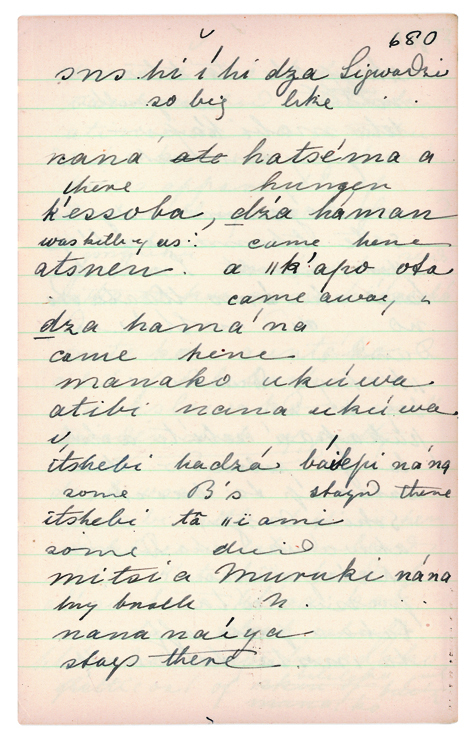 680
sns hí í hi dza Sigwadzi
so big like
kana ato hatséma a
there hunger
k'essoba, dza haman
was killing us. came here
atsnen. a "k'apo ota
came away
dza hama'na
came here
manako ukúwa
atibi nana ukúwa
itshebi hadzá nána
some B's stayd there
itshebi ta "iami
some died
mitsi a Muruki nána
my M.
nana naíya
stays there